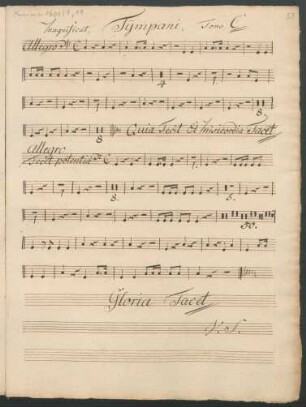 Magnificat, Tympani. Tono C
Allegro
4
8
8 Quia Fecit Et Misericordia Tacet
Allegro
Fecit potentiam
8. 8.
5.
30.
Gloria Tacet
V. S.